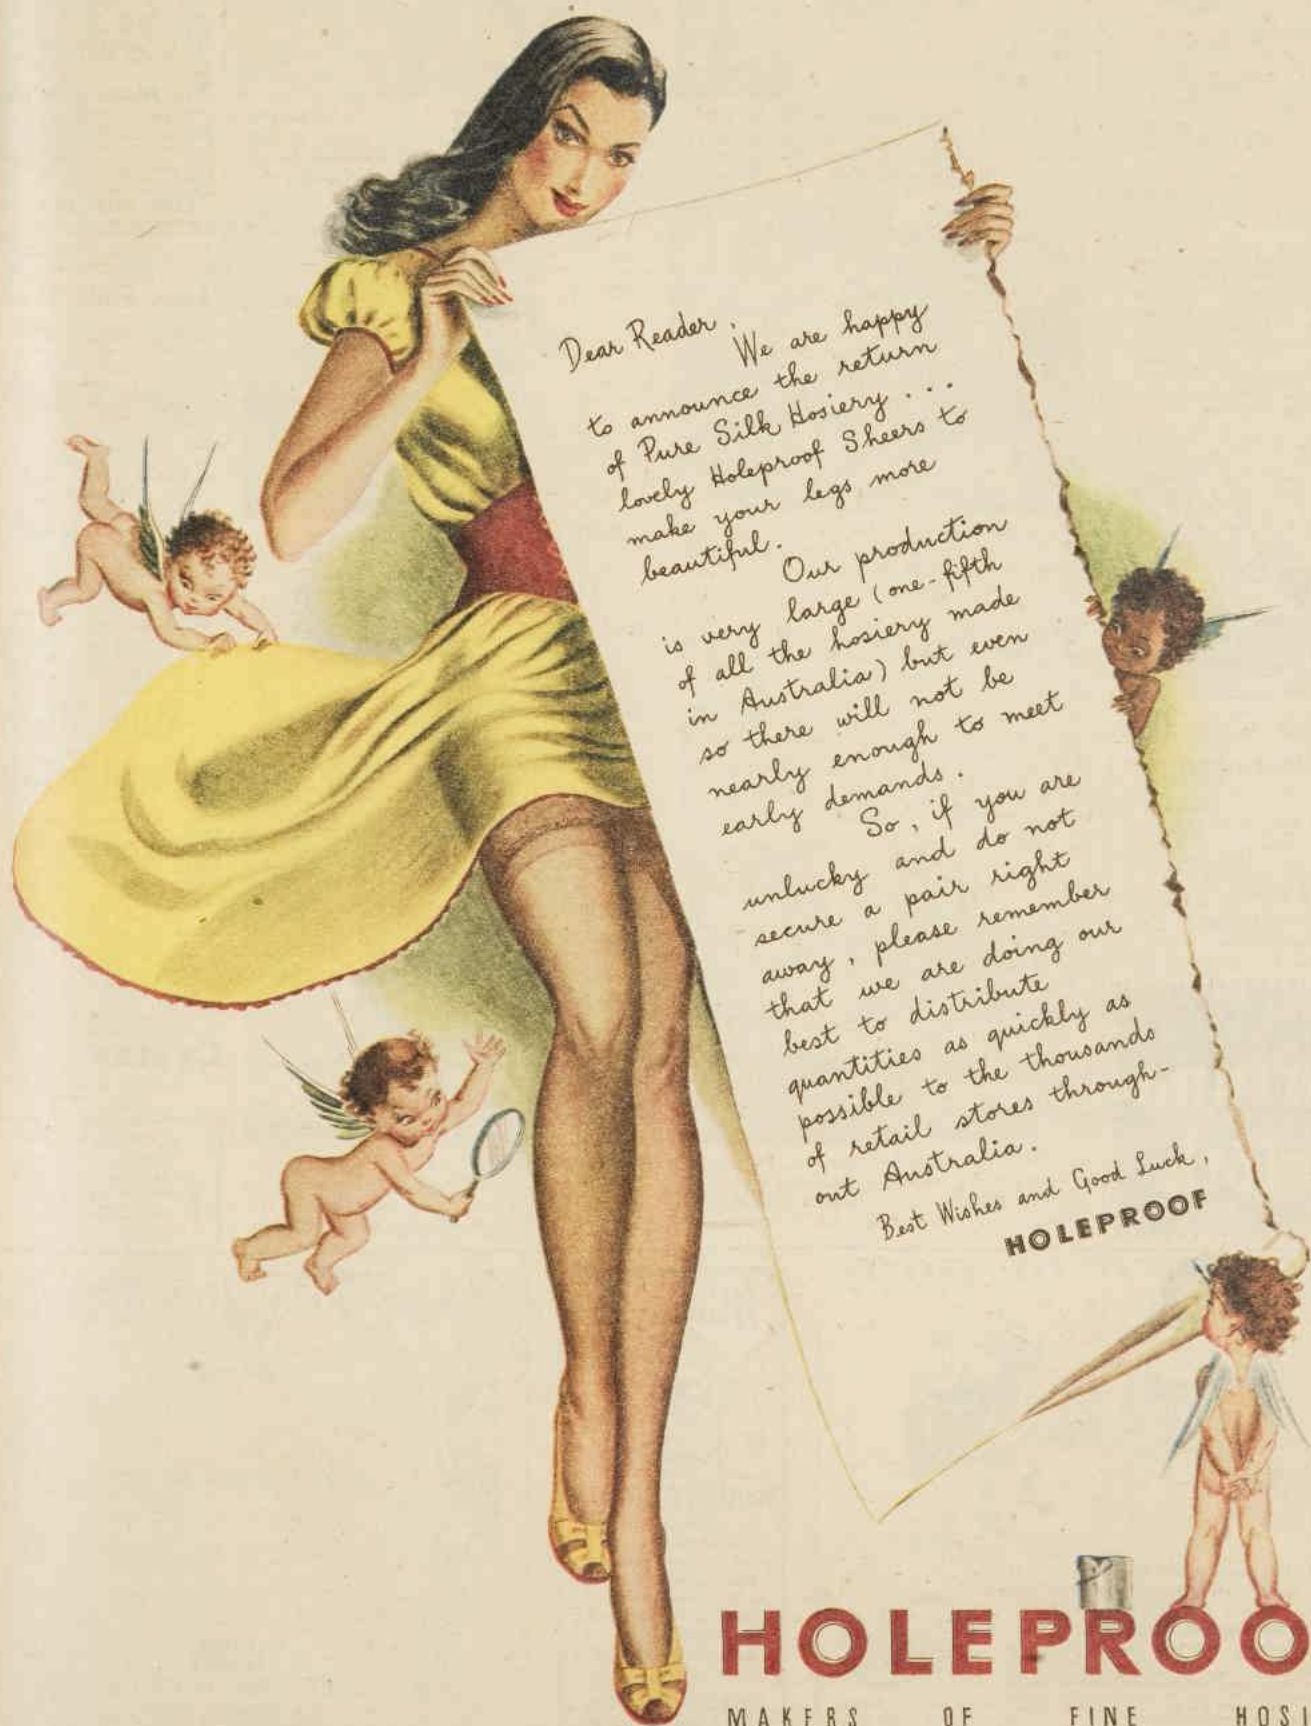 Dear Reader,
We are happy
to announce the return
of Pure Silk Hosiery . . .
lovely Holeproof Sheers to
make your legs more
beautiful.
Our production
is very large (one-fifth
of all the hosiery made
in Australia) but even
so there will not be
nearly enough to meet
early demands.
So, if you are
unlucky and do not
secure a pair right
away, please remember
that we are doing our
best to distribute
quantities as quickly as
possible to the thousands
of retail stores through-
out Australia.
Best Wishes and Good Luck,
HOLEPROOF
HOLEPROO
MAKERS OF FINE HOSI